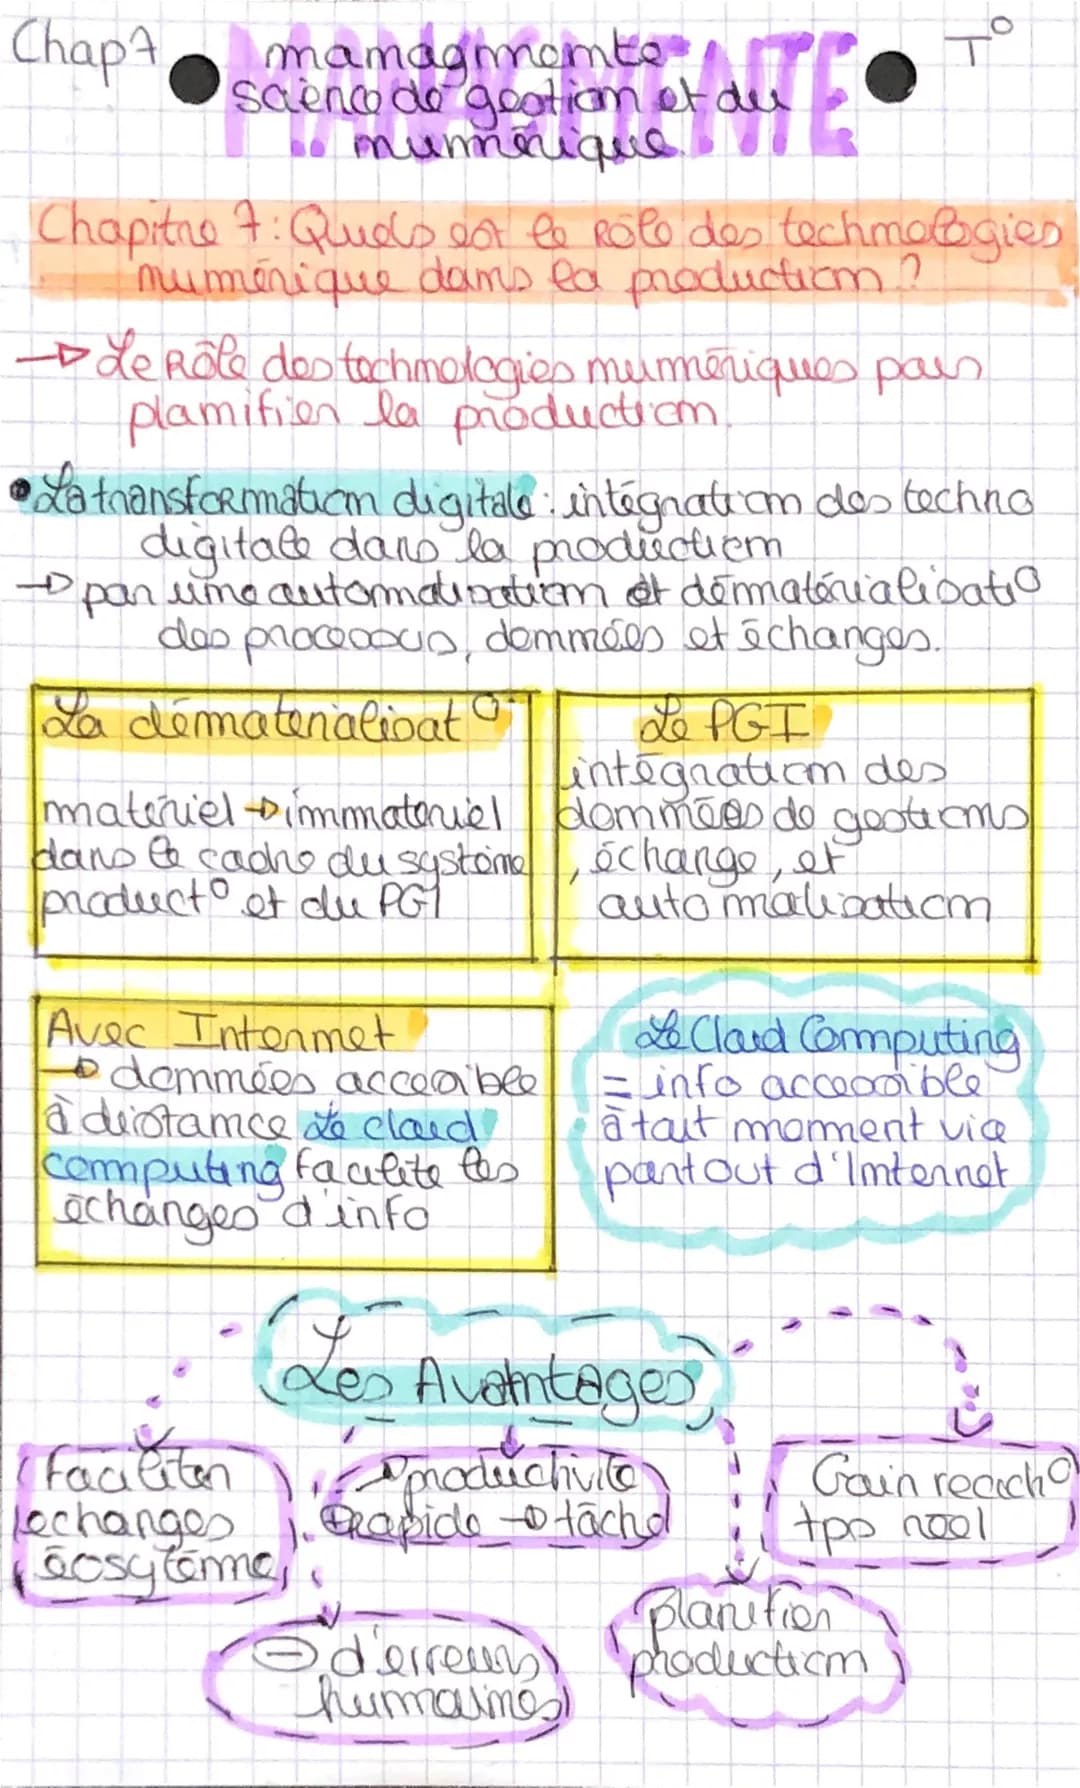 Chap 7
T°
MANAGMENTE
managmente
science de gestion et du
numérique
Chapitre 7 : Quels est le Rôle des technologies
numérique dans la production ?
→ Le Rôle des technologies numériques pour
planifier la production.
• La transformation digitale : intégration des techno
digitale dans la production
→ par une automatisation et dématérialisat°
des processus, données et échanges.
La dématerialisat°
matériel → immateriel
dans le cadre du système
product° et du PGI
Le PGI
intégration des
données de gestions
, échange, et
automatisation
Avec Internet
→ données accessible
à distance Le cloud
computing facilite les
échanges d'info
Le Cloud Computing
= info accessible
à tout moment via
partout d'Internet
Les Avantages
Faciliter
echanges
écosytème
productivité
rapide → tâche
Gain
tps réel
⊖ d'erreurs
humaines
planifier
production